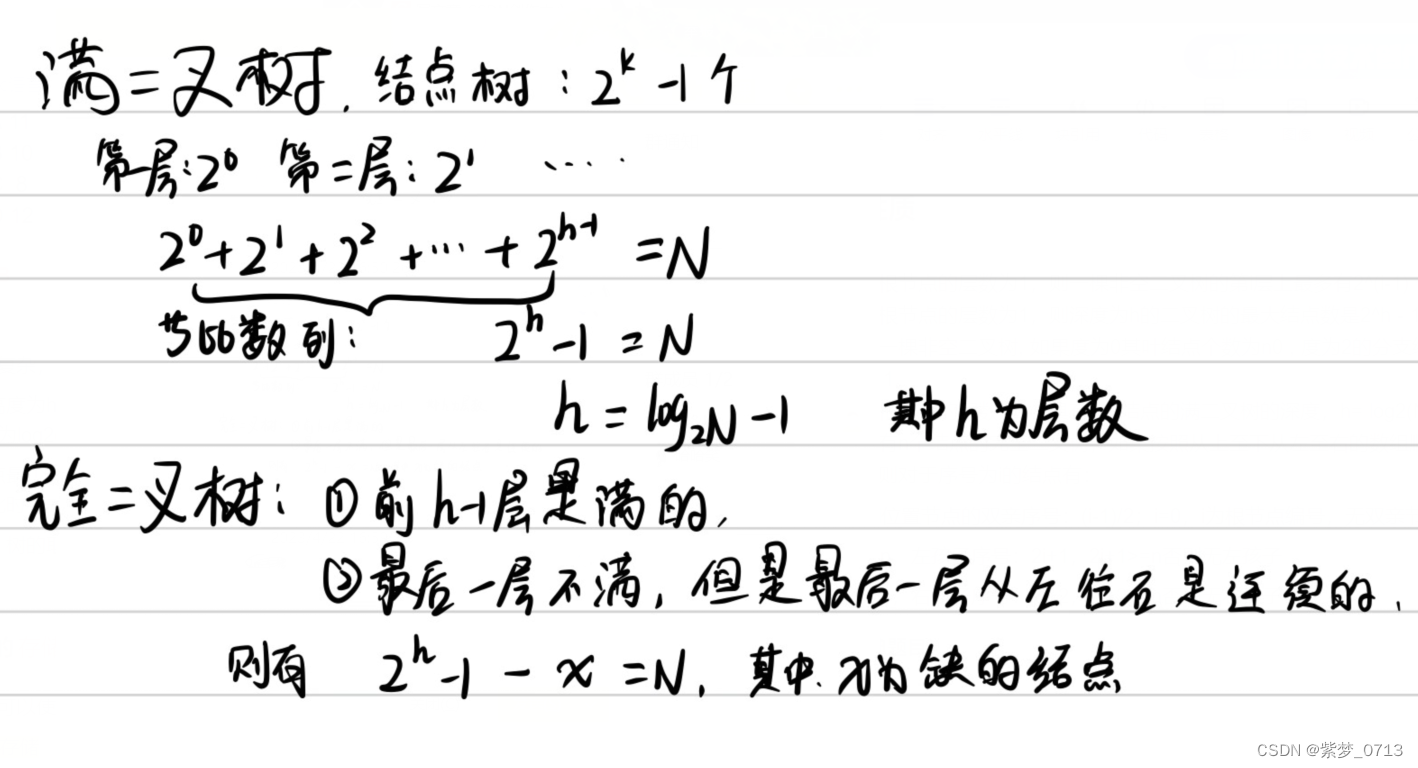 满二叉树, 结点树：2^k -1 个
第一层：2^0 第二层：2^1 ·····
2^0+2^1+2^2+···+2^{h-1} =N
等比数列： 2^h-1 =N
h=log₂N-1 其中h为层数
完全二叉树：①前h-1层是满的,
②最后一层不满，但是最后一层从左往右是连续的,
则有 2^h-1-x=N, 其中x为缺的结点
CSDN @紫梦_0713